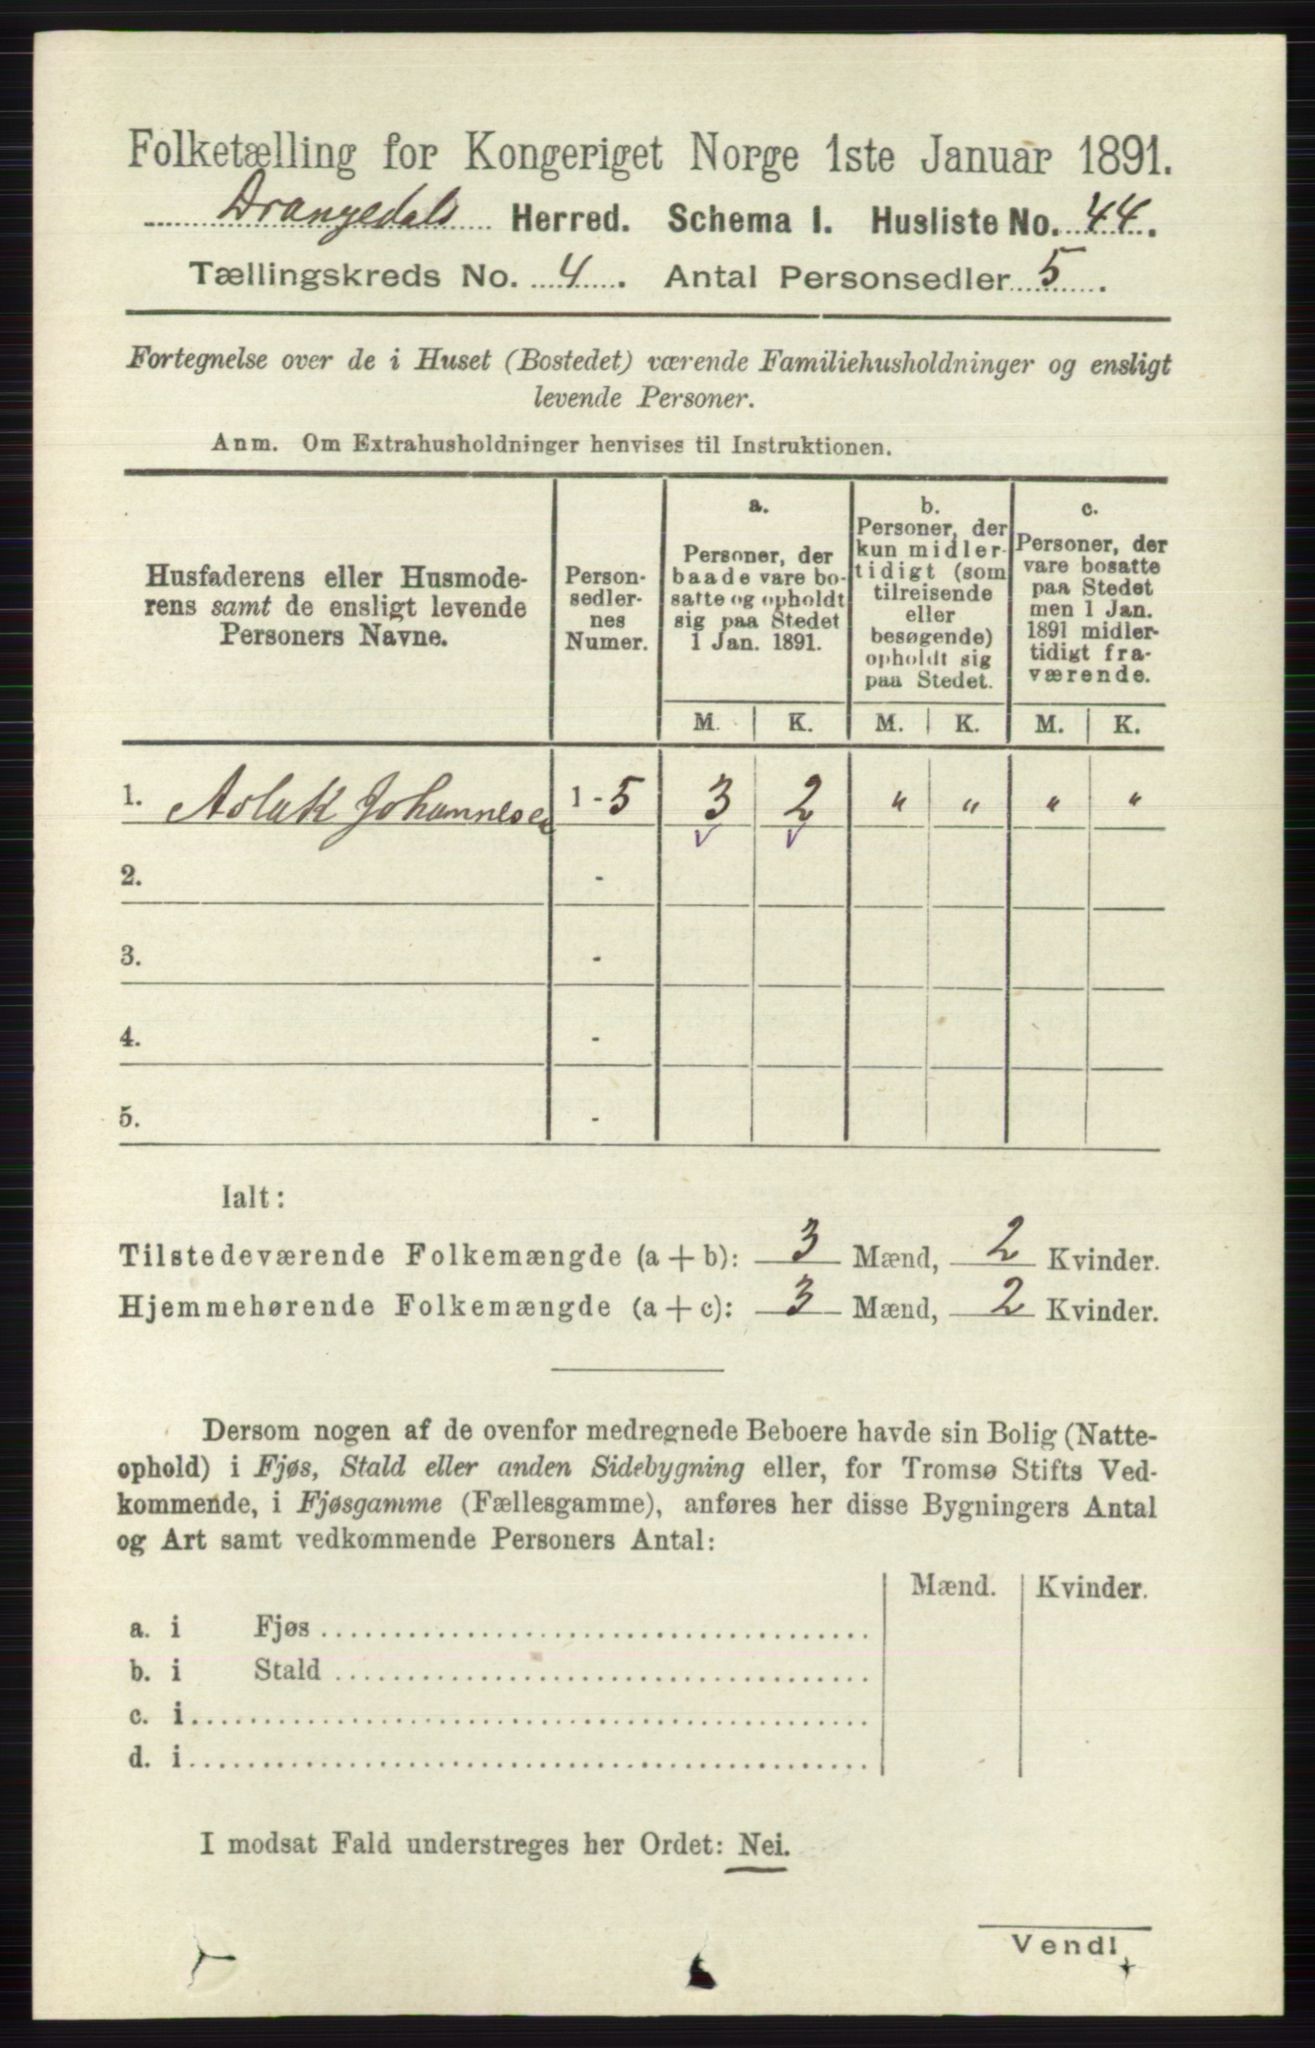 Folketælling for Kongeriget Norge 1ste Januar 1891.
Drangedals Herred. Schema I. Husliste No. 44.
Tællingskreds No. 4. Antal Personsedler 5.
Fortegnelse over de i Huset (Bostedet) værende Familiehusholdninger og ensligt
levende Personer.
Anm. Om Extrahusholdninger henvises til Instruktionen.
Husfaderens eller Husmode-
rens samt de ensligt levende
Personers Navne.
Person-
sedler-
nes
Numer.
a.
Personer, der
baade vare bo-
satte og opholdt
sig paa Stedet
1 Jan. 1891.
b.
Personer, der
kun midler-
tidigt (som
tilreisende
eller
besøgende)
opholdt sig
paa Stedet.
c.
Personer, der
vare bosatte
paa Stedet
men 1 Jan.
1891 midler-
tidigt fra-
værende.
M. K. M. K. M. K.
1. Aslak Johannesen 1 - 5 3 2 " " " "
2. -
3. -
4. -
5. -
Ialt:
Tilstedeværende Folkemængde (a + b): 3 Mænd, 2 Kvinder.
Hjemmehørende Folkemængde (a + c): 3 Mænd, 2 Kvinder.
Dersom nogen af de ovenfor medregnede Beboere havde sin Bolig (Natte-
ophold) i Fjøs, Stald eller anden Sidebygning eller, for Tromsø Stifts Ved-
kommende, i Fjøsgamme (Fællesgamme), anføres her disse Bygningers Antal
og Art samt vedkommende Personers Antal:
Mænd. Kvinder.
a. i Fjøs
b. i Stald
c. i
d. i
I modsat Fald understreges her Ordet: Nei.
Vend!